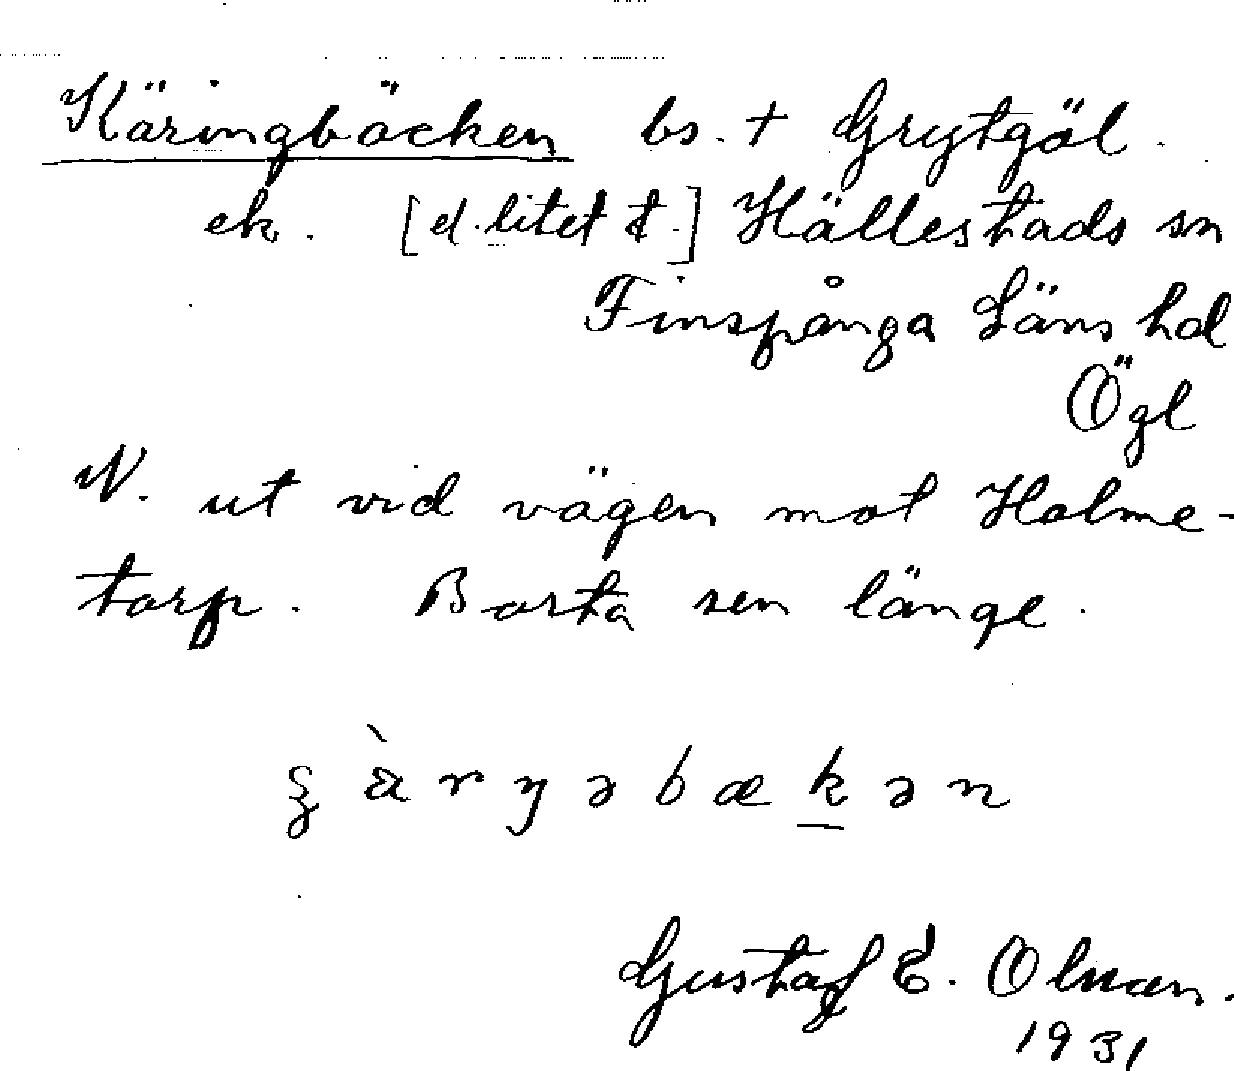 Käringbäcken bs. † Grytgöl.
ek. [el. litet t.] Hällestads sn
Finspånga Läns hd
Ögl
N. ut vid vägen mot Holme-
torp. Borta sen länge.
bækən
Gustaf E. Olman.
1931